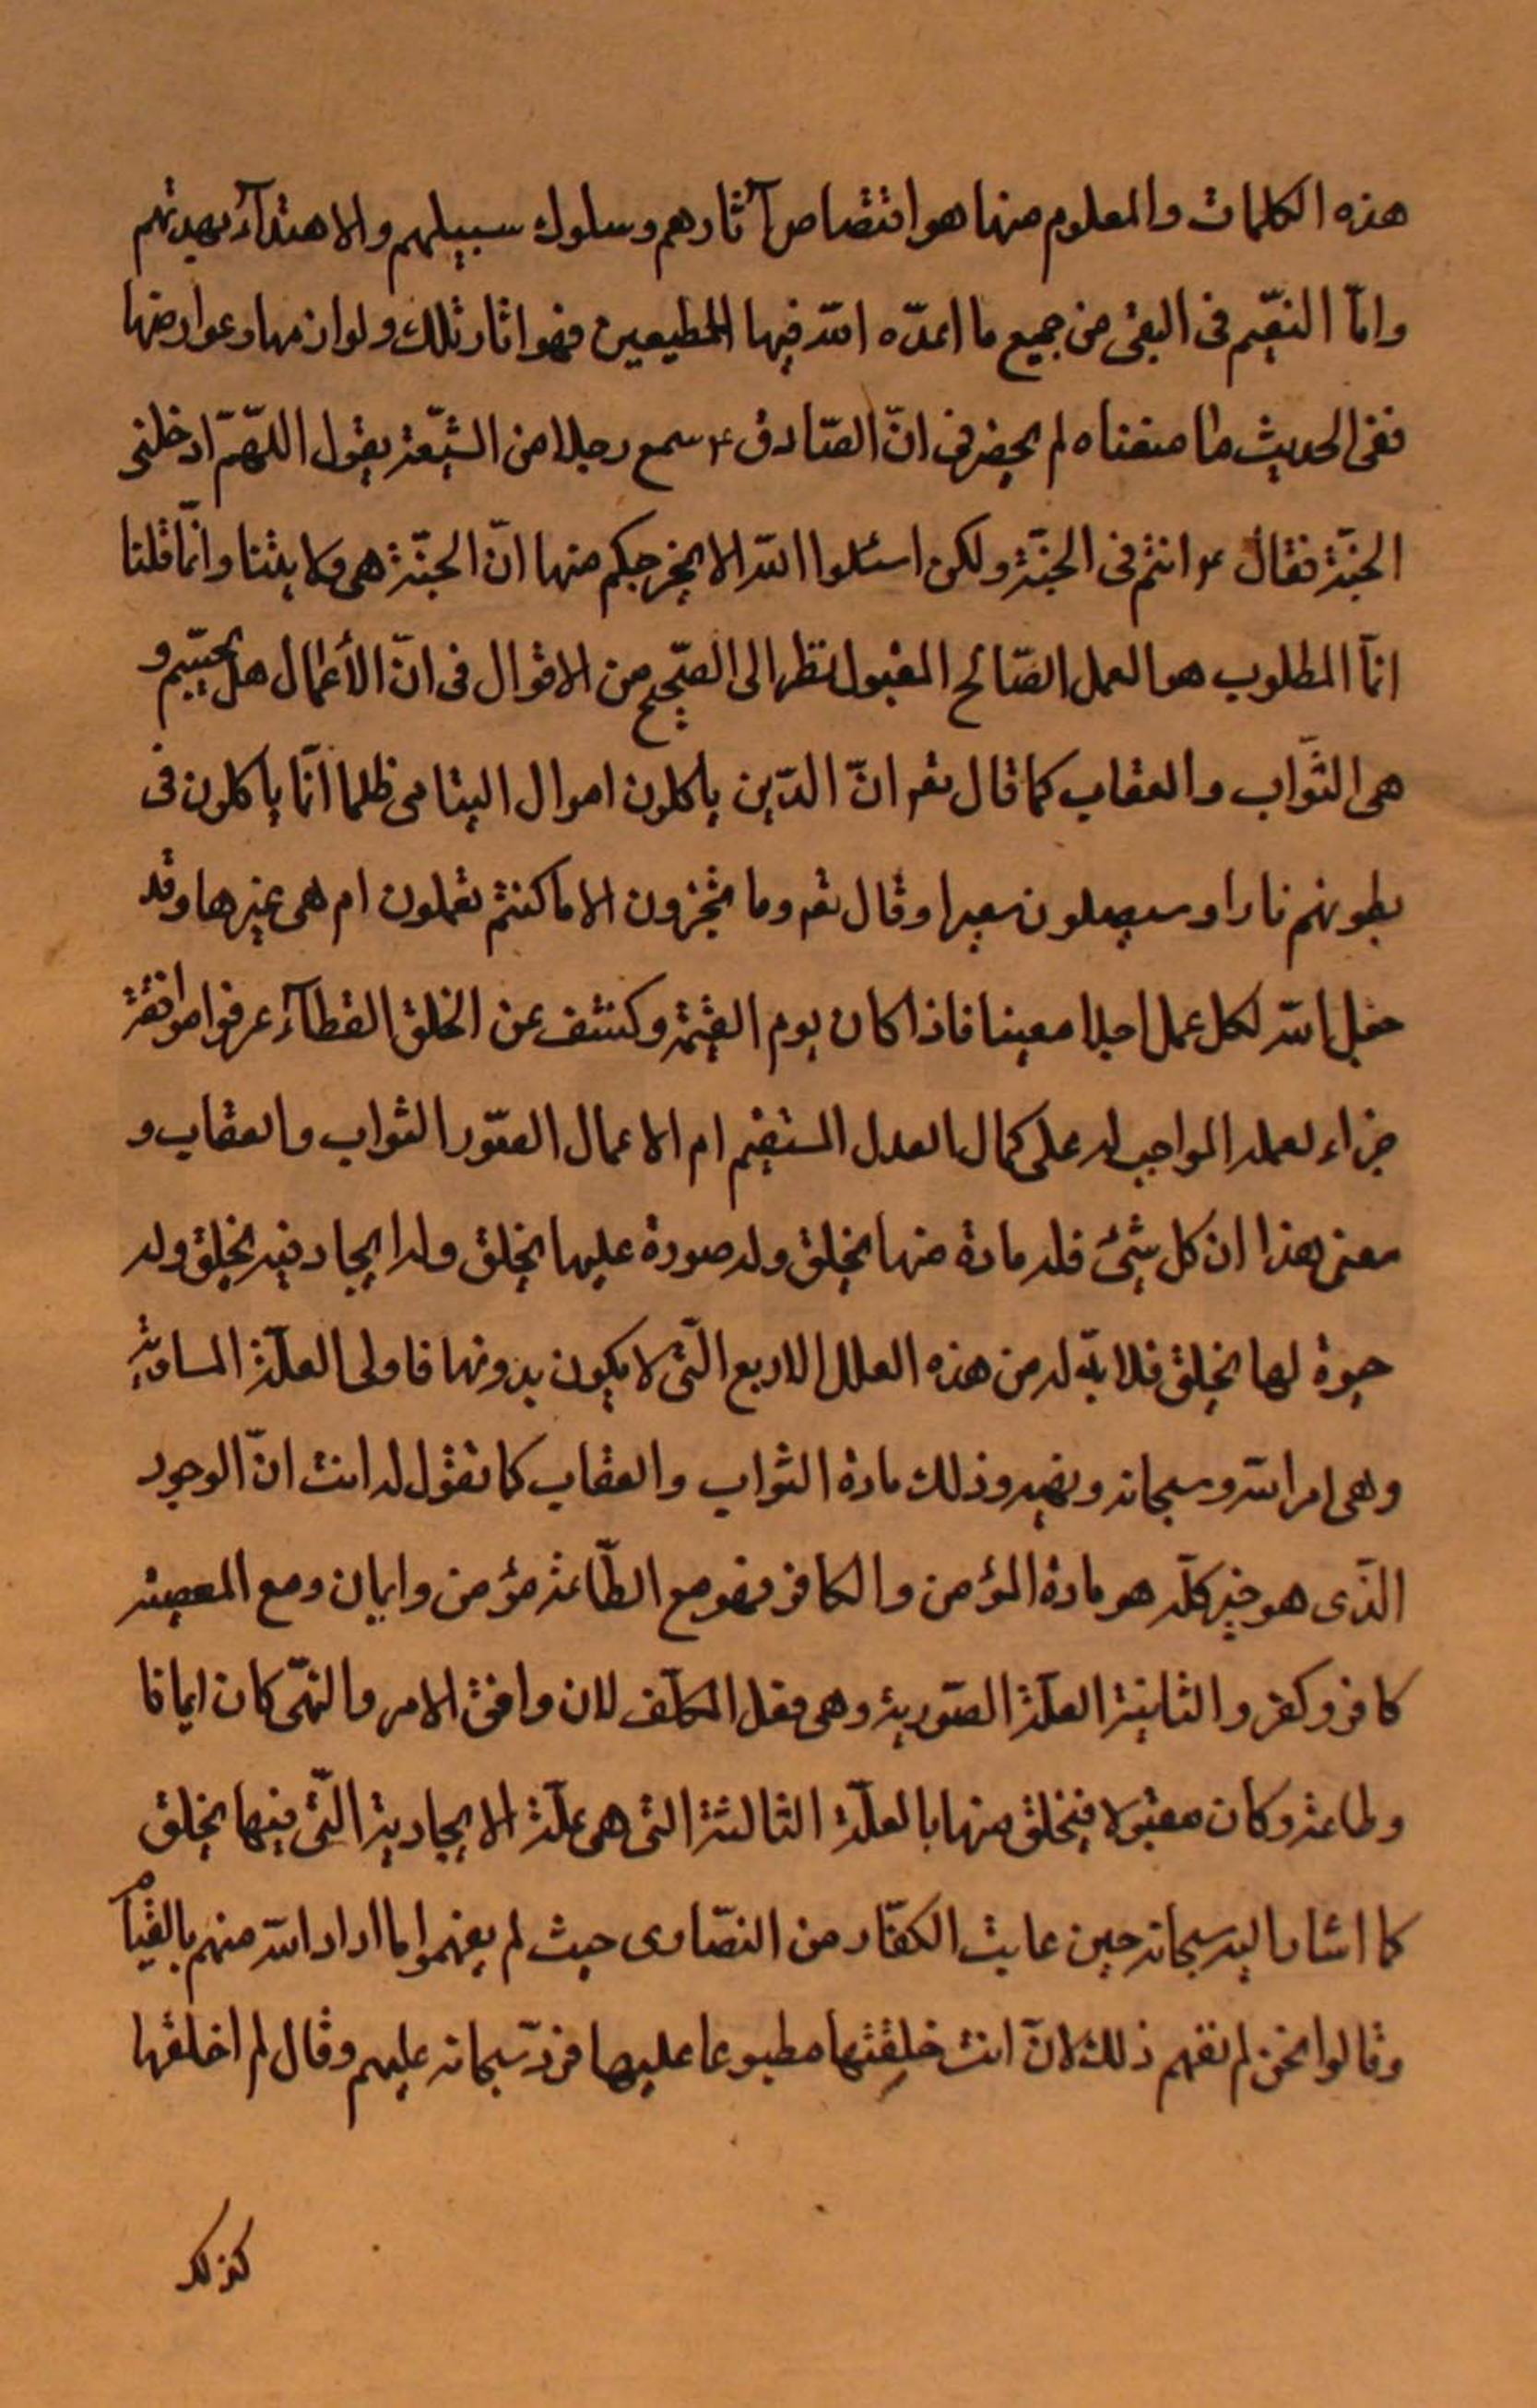 هذه الكلمات والمعلوم منها هو اقتصاص آثارهم وسلوك سبيلهم والاهتدآء بهديهم
وامّا النعّيم فى البقى من جميع ما اعدّه اللّه فيها للمطيعين فهو اثار تلك ولوازمها وعوارضها
ففى الحديث ما معناه لم يحضرنى انّ الصّادق ع سمع رجلا من الشيّعة يقول اللّهمّ ادخلنى
الجنّة فقال ع انتم فى الجنّة ولكن اسئلوا اللّه الا يخرجكم منها انّ الجنّة هى ولايتنا وانّما قلنا
انّما المطلوب هو العمل الصّالح المقبول نظرا الى الصّحيح من الاقوال فى انّ الأعمال هل تجسّم و
هى الثّواب والعقاب كما قال تعم انّ الذّين ياكلون اموال اليتامى ظلما انّما ياكلون فى
بطونهم نارا وسيصلون سعيرا وقال تعم وما تجزون الا ما كنتم تعملون ام هى غيرها وقد
جعل اللّه لكل عمل اجلا معينا فاذا كان يوم القيمة وكشف عن الخلق الغطآء عرفوا موافقة
جزاء لعمله الواجب له على كمال العدل المستقيم ام الاعمال الصّور الثواب والعقاب و
معنى هذا ان كل شيئ فله مادة منها يخلق وله صورة عليها يخلق وله ايجاد فيه يخلق وله
حيوة لها يخلق فلا بدّ له من هذه العلل الاربع الّتى لا يكون بدونها فاولى العلّة الماديّة
وهى امر اللّه وسبحانه ونهيه وذلك مادة الثواب والعقاب كما تقول له انت انّ الوجود
الذّى هو خير كلّه هو مادة المؤمن والكافر فهو مع الطّاعة مؤمن وايمان ومع المعصية
كافر وكفر والثانية العلّة الصّورية وهى فعل المكلّف لان وافق الامر والنهّى كان ايمانا
وطاعة وكان مقبولا فيخلق منها بالعلّة الثالثة التى هى علّة الايجادية الّتى فيها يخلق
كما اشار اليه سبحانه حين عايت الكفّار من النصّارى حيث لم يفهموا ما اراد اللّه منهم بالقيام
وقالوا نحن لم نفهم ذلك لانّ انت خلقتها مطبوعا عليها فردّ سبحانه عليهم وقال لم اخلقها
كذلك